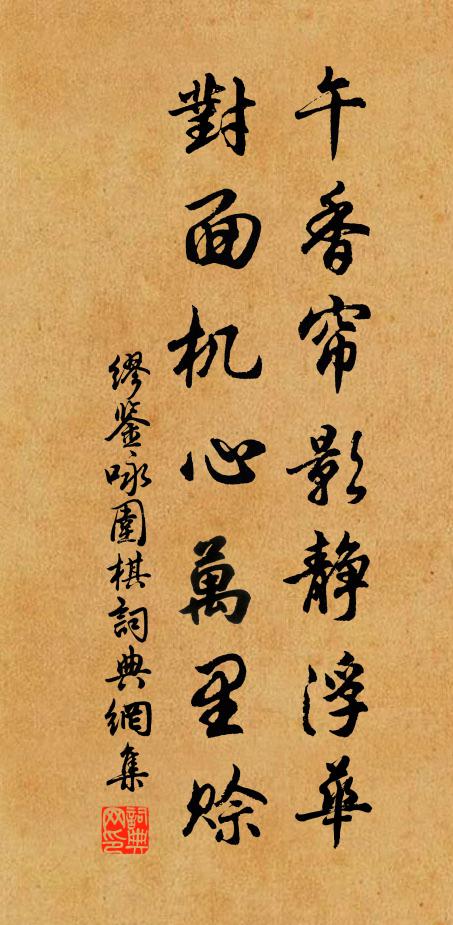 午香帘影静浮華
對面机心萬里賒
缪鉴咏圍棋詞典網集
詞典网印